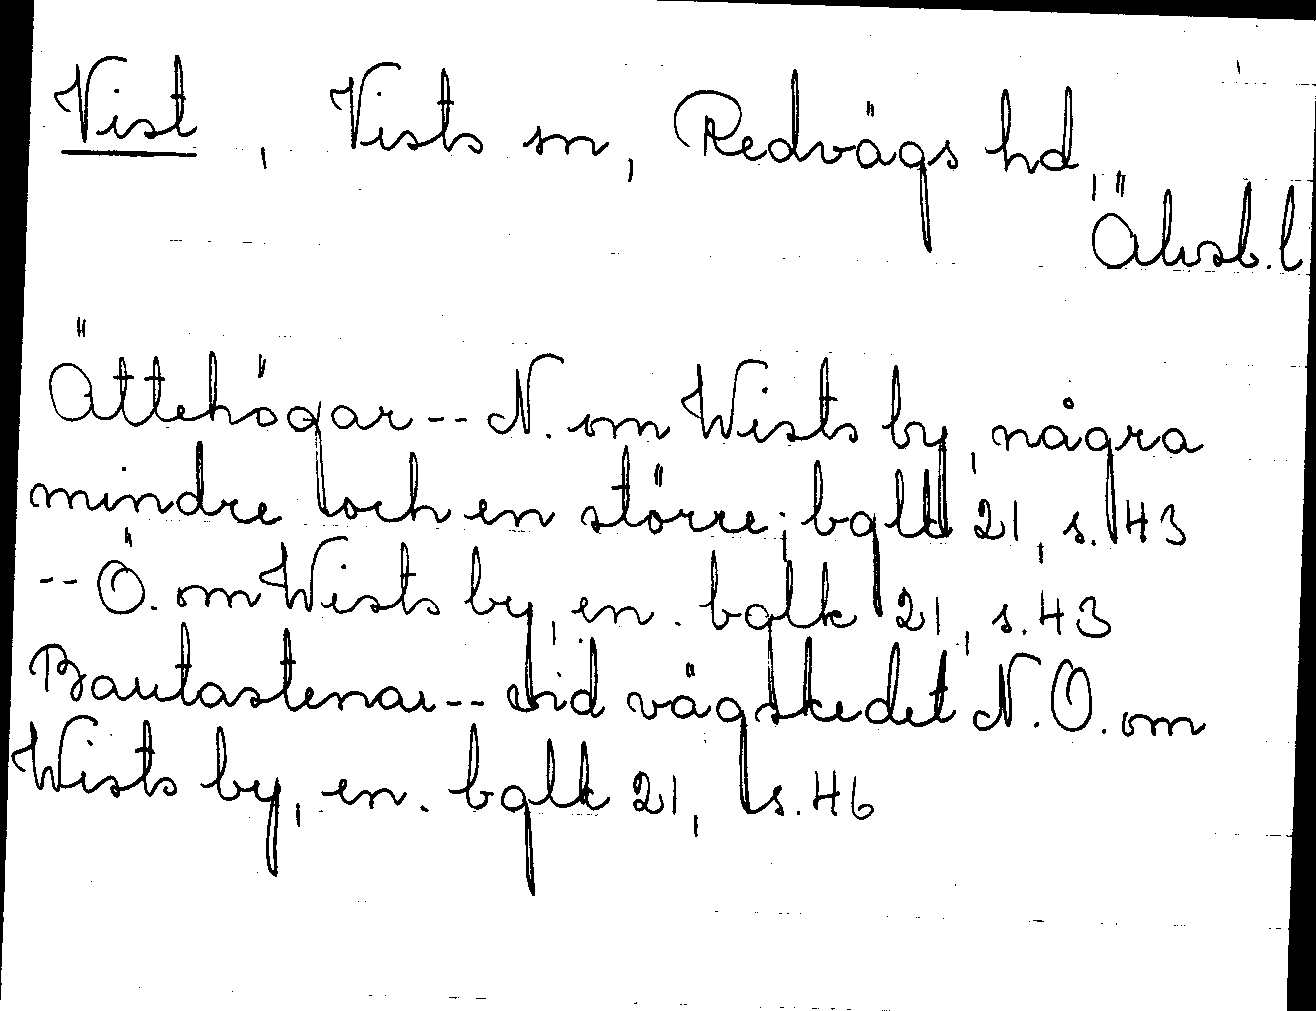 Vist, Vists sn, Redvägs hd,
Älvsb. l
Ättehögar -- N. om Wists by, några
mindre och en större; bglk 21, s. 43
-- Ö. om Wists by, en. bglk 21, s. 43
Bautastenar -- vid vägskedet N. O. om
Wists by, en. bglk 21, s. 46